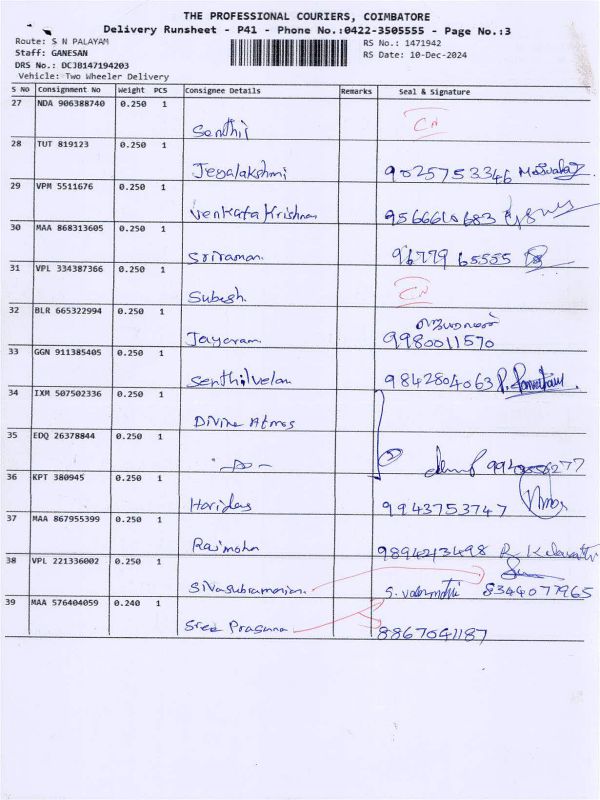 THE PROFESSIONAL COURIERS, COIMBATORE
Delivery Runsheet - P41 - Phone No.:0422-3505555 - Page No.:3
Route: S N PALAYAM
RS No.: 1471942
Staff: GANESAN
RS Date: 10-Dec-2024
DRS No.: DCJB147194203
Vehicle: Two Wheeler Delivery
S No Consignment No Weight PCS Consignee Details Remarks Seal & Signature
27 NDA 906388740 0.250 1
Senthil
28 TUT 819123 0.250 1
Jegalakshmi 9025753346
29 VPM 5511676 0.250 1
Venkata Krishnan 9566610683
30 MAA 868313605 0.250 1
Sriraman 96779 65555
31 VPL 334387366 0.250 1
Subesh
32 BLR 665322994 0.250 1
ஜெயராமன்
Jayaram 9980011570
33 GGN 911385405 0.250 1
Senthilvelan 9842804063
34 IXM 507502336 0.250 1
Divine Atmos
35 EDQ 26378844 0.250 1
36 KPT 380945 0.250 1
Haridas 9943753747
37 MAA 867955399 0.250 1
Rajmohn 9894213498
38 VPL 221336002 0.250 1
Sivasubramanian 8344077965
39 MAA 576404059 0.240 1
Sree Prasanna 8867041187